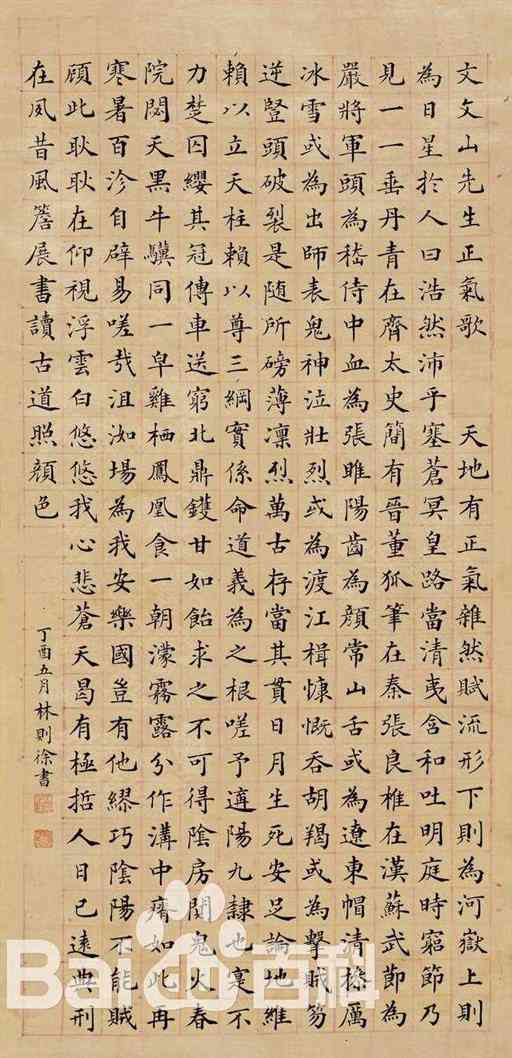 文文山先生正氣歌 天地有正氣雜然賦流形下則為河嶽上則
為日星於人曰浩然沛乎塞蒼冥皇路當清夷含和吐明庭時窮節乃
見一一垂丹青在齊太史簡有晉董狐筆在秦張良椎在漢蘇武節為
嚴將軍頭為嵇侍中血為張睢陽齒為顏常山舌或為遼東帽清操厲
冰雪或為出師表鬼神泣壯烈或為渡江楫慷慨吞胡羯或為擊賊笏
逆豎頭破裂是隨所磅薄凜烈萬古存當其貫日月生死安足論地維
賴以立天柱賴以尊三綱實係命道義為之根嗟予遘陽九隸也寔不
力楚囚纓其冠傳車送窮北鼎鑊甘如飴求之不可得陰房闃鬼火春
院閟天黑牛驥同一皁雞栖鳳凰食一朝濛霧露分作溝中瘠如此再
寒暑百沴自辟易嗟哉沮洳場為我安樂國豈有他繆巧陰陽不能賊
顧此耿耿在仰視浮雲白悠悠我心悲蒼天曷有極哲人日已遠典刑
在夙昔風簷展書讀古道照顏色
丁酉五月林則徐書
Bai百科